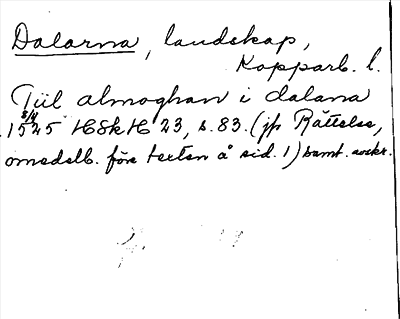 Dalarna, landskap,
Kopparb. l.
Tiil almoghan i dalana
8/4
1525 HSkH 23, s. 83. (jfr Rättelse,
omedelb. före texten å sid. 1) samt. avskr.